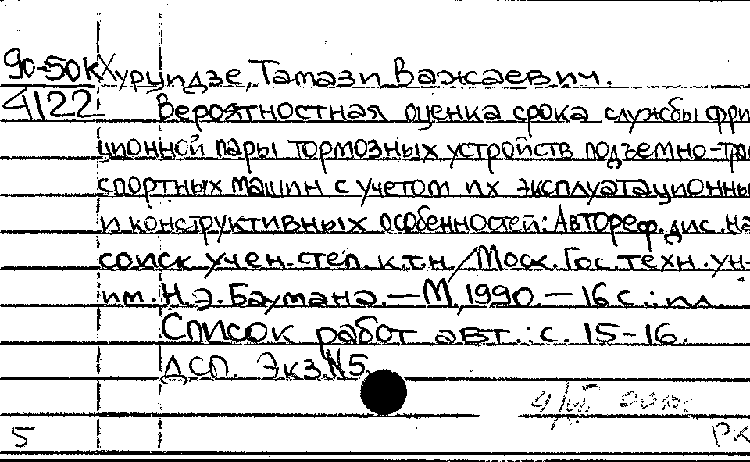 90-50к Хурцидзе, Тамази Важаевич.
4122 Вероятностная оценка срока службы фрик
ционной пары тормозных устройств подъемно-тран
спортных машин с учетом их эксплуатационны
и конструктивных особенностей: Автореф. дис. на
соиск. учен. степ. к.т.н./Моск. Гос. техн. ун-
им. Н.Э. Баумана. — М, 1990. — 16 с.: ил.
Список работ авт.: с. 15-16.
ДСП. Экз. N5.
5 РК